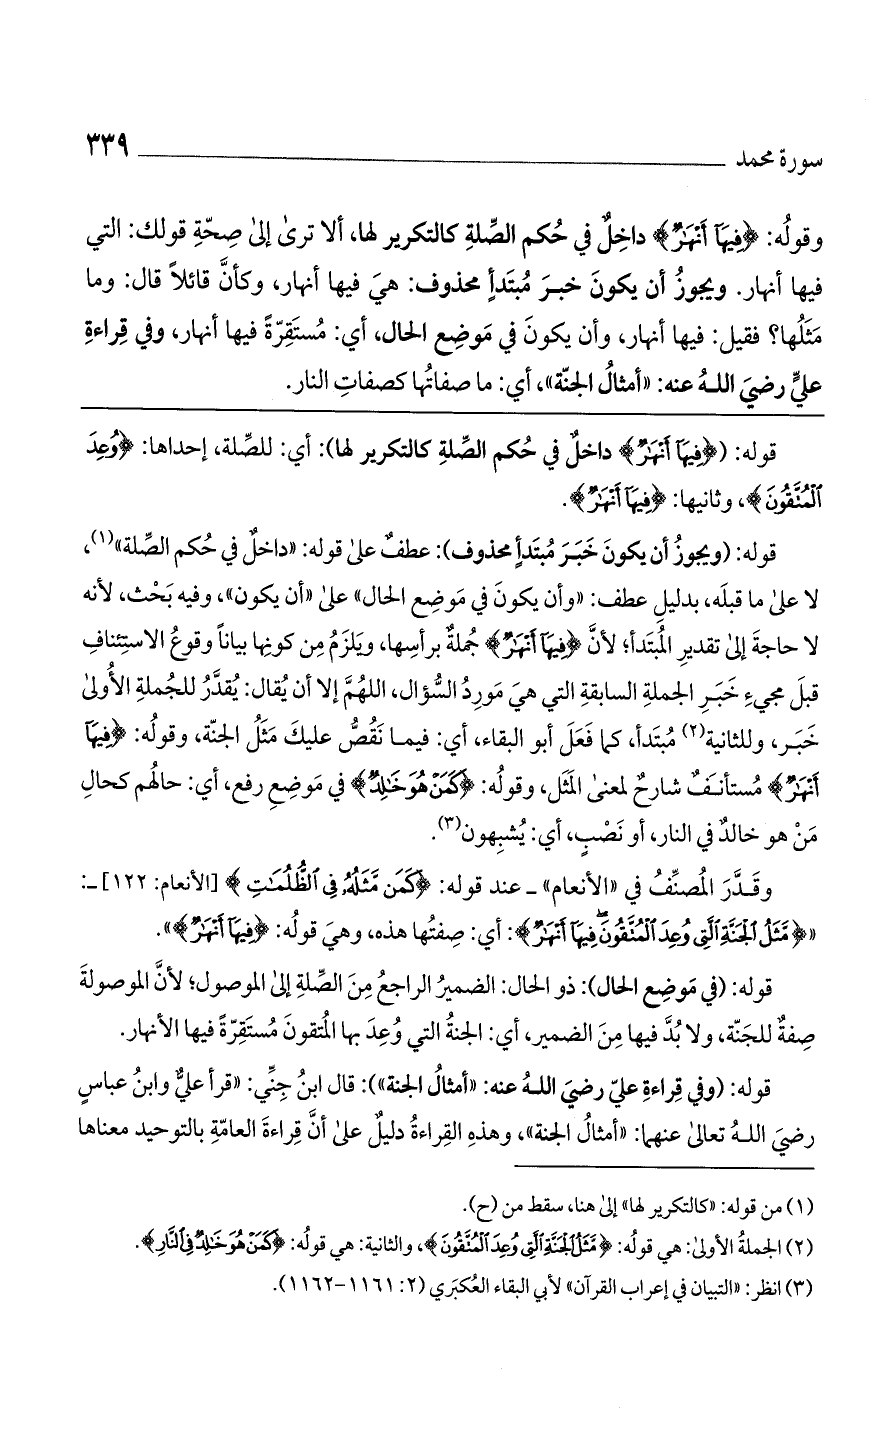 سورة محمد ٣٣٩
وقولُه: ﴿فِيهَآ أَنْهَٰرٌ﴾ داخِلٌ في حُكم الصِّلةِ كالتكرير لها، ألا ترىٰ إلىٰ صِحّةِ قولك: التي
فيها أنهار. ويجوزُ أن يكونَ خبرَ مُبتَدأٍ محذوف: هيَ فيها أنهار، وكأنَّ قائلاً قال: وما
مَثَلُها؟ فقيل: فيها أنهار، وأن يكونَ في مَوضِع الحال، أي: مُستَقِرّةً فيها أنهار، وفي قِراءةِ
عليٍّ رضيَ اللـهُ عنه: «أمثالُ الجنّة»، أي: ما صفاتُها كصفاتِ النار.
قوله: (﴿فِيهَآ أَنْهَٰرٌ﴾ داخلٌ في حُكم الصِّلةِ كالتكرير لها): أي: للصِّلة، إحداها: ﴿وُعِدَ
ٱلْمُتَّقُونَ﴾، وثانيها: ﴿فِيهَآ أَنْهَٰرٌ﴾.
قوله: (ويجوزُ أن يكونَ خَبَرَ مُبتَدأٍ محذوف): عطفٌ علىٰ قوله: «داخلٌ في حُكم الصِّلة»(١)،
لا علىٰ ما قبلَه، بدليلِ عطف: «وأن يكونَ في مَوضِع الحال» علىٰ «أن يكون»، وفيه بَحْث، لأنه
لا حاجةَ إلىٰ تقديرِ المُبتَدأ؛ لأنَّ ﴿فِيهَآ أَنْهَٰرٌ﴾ جُملةٌ برأسِها، ويَلزَمُ مِن كونِها بياناً وقوعُ الاستِئنافِ
قبلَ مجيءِ خَبَرِ الجملةِ السابقةِ التي هيَ مَورِدُ السُّؤال، اللهُمَّ إلا أن يُقال: يُقدَّرُ للجُملةِ الأُولىٰ
خَبَر، وللثانية(٢) مُبتَدأ، كما فَعَلَ أبو البقاء، أي: فيمـا نَقُصُّ عليكَ مَثَلُ الجنّة، وقولُه: ﴿فِيهَآ
أَنْهَٰرٌ﴾ مُستأنَـفٌ شارحٌ لمعنىٰ المَثَل، وقولُه: ﴿كَمَنْ هُوَ خَٰلِدٌ﴾ في مَوضِعِ رفع، أي: حالُهم كحالِ
مَنْ هو خالدٌ في النار، أو نَصْبٍ، أي: يُشبِهون(٣).
وقَـدَّرَ المُصنِّفُ في «الأنعام» ـ عند قوله: ﴿كَمَن مَّثَلُهُۥ فِى ٱلظُّلُمَٰتِ﴾ [الأنعام: ١٢٢] ـ:
«﴿مَّثَلُ ٱلْجَنَّةِ ٱلَّتِى وُعِدَ ٱلْمُتَّقُونَ ۖ فِيهَآ أَنْهَٰرٌ﴾: أي: صِفتُها هذه، وهيَ قولُه: ﴿فِيهَآ أَنْهَٰرٌ﴾».
قوله: (في مَوضِع الحال): ذو الحال: الضميرُ الراجعُ مِنَ الصِّلةِ إلىٰ الموصول؛ لأنَّ الموصولةَ
صِفةٌ للجَنّة، ولا بُدَّ فيها مِنَ الضمير، أي: الجنةُ التي وُعِدَ بها المُتقونَ مُستَقِرّةً فيها الأنهار.
قوله: (وفي قِراءةِ عليّ رضيَ اللـهُ عنه: «أمثالُ الجنة»): قال ابنُ جِنِّي: «قرأ عليٌّ وابنُ عباسٍ
رضيَ اللـهُ تعالىٰ عنهما: «أمثالُ الجنة»، وهذهِ القِراءةُ دليلٌ علىٰ أنَّ قِراءةَ العامّةِ بالتوحيد معناها
(١) من قوله: «كالتكرير لها» إلىٰ هنا، سقط من (ح).
(٢) الجملةُ الأولىٰ: هي قولُه: ﴿مَّثَلُ ٱلْجَنَّةِ ٱلَّتِى وُعِدَ ٱلْمُتَّقُونَ﴾، والثانية: هي قولُه: ﴿كَمَنْ هُوَ خَٰلِدٌ فِى ٱلنَّارِ﴾.
(٣) انظر: «التبيان في إعراب القرآن» لأبي البقاء العُكبَري (٢: ١١٦١-١١٦٢).